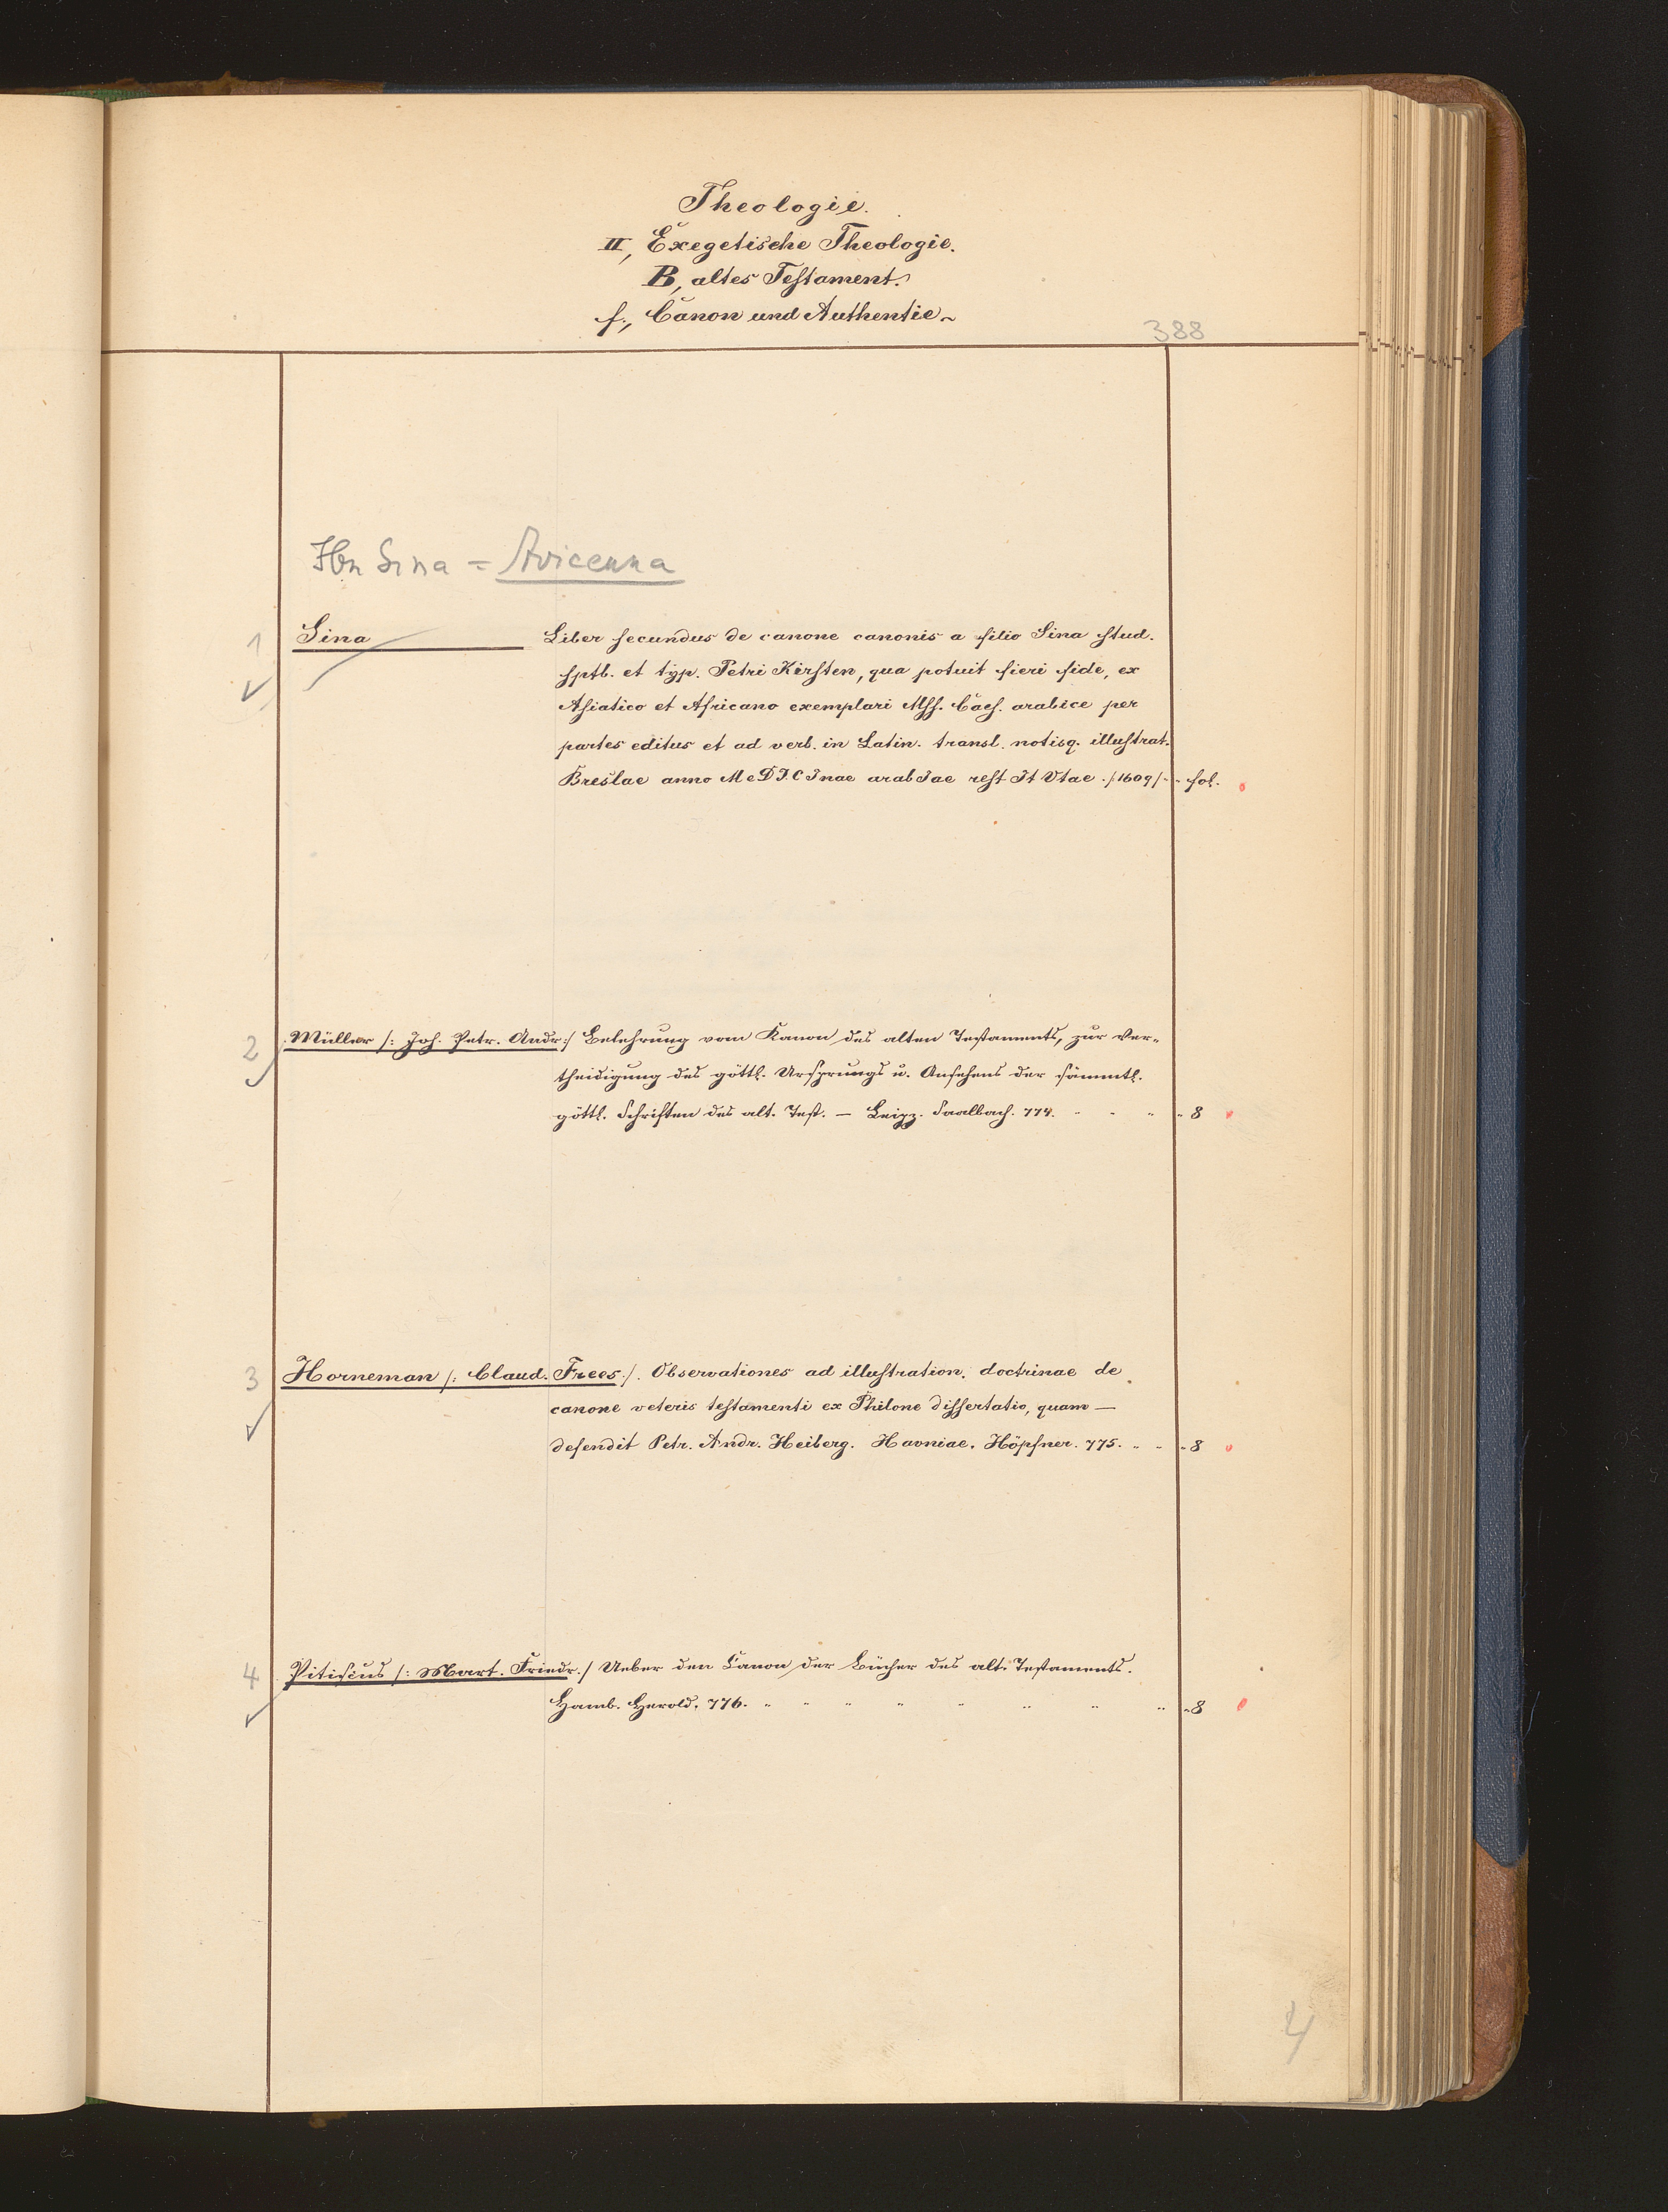 Theologie.
II, Exegetische Theologie.
B, altes Testament.
f., Canon und Authentie.
388
Ibn Sina = Avicenna
1
Sina Liber secundus de canone canonis a filio Sina stud.
sptb. et typ. Petri Kirsten, qua potuit fieri fide, ex
Asiatico et Africano exemplari Mss. Caes. arabice per
partes editus et ad verb. in Latin. transl. notisq. illustrat.
Breslae anno MeDICInae arabIae rest It Vtae ./1609/ - - fol.
2 Müller /: Joh. Petr. Andr :/ Belehrung vom Kanon des alten Testaments, zur Ver-
theidigung des göttl. Ursprungs u. Ansehens der sämmtl.
göttl. Schriften des alt. Test. — Leipz. Saalbach. 774. " " " " 8
3 Horneman /: Claud. Frees./. Observationes ad illustration. doctrinae de
canone veteris testamenti ex Philone dissertatio, quam —
defendit Petr. Andr. Heiberg. Havniae. Höpfner. 775. " " " 8
4 Pitiscus /: Mart. Friedr./ Ueber den Canon der Bücher des alt. Testaments.
Hamb. Herold. 776. " " " " " " " " " 8
4